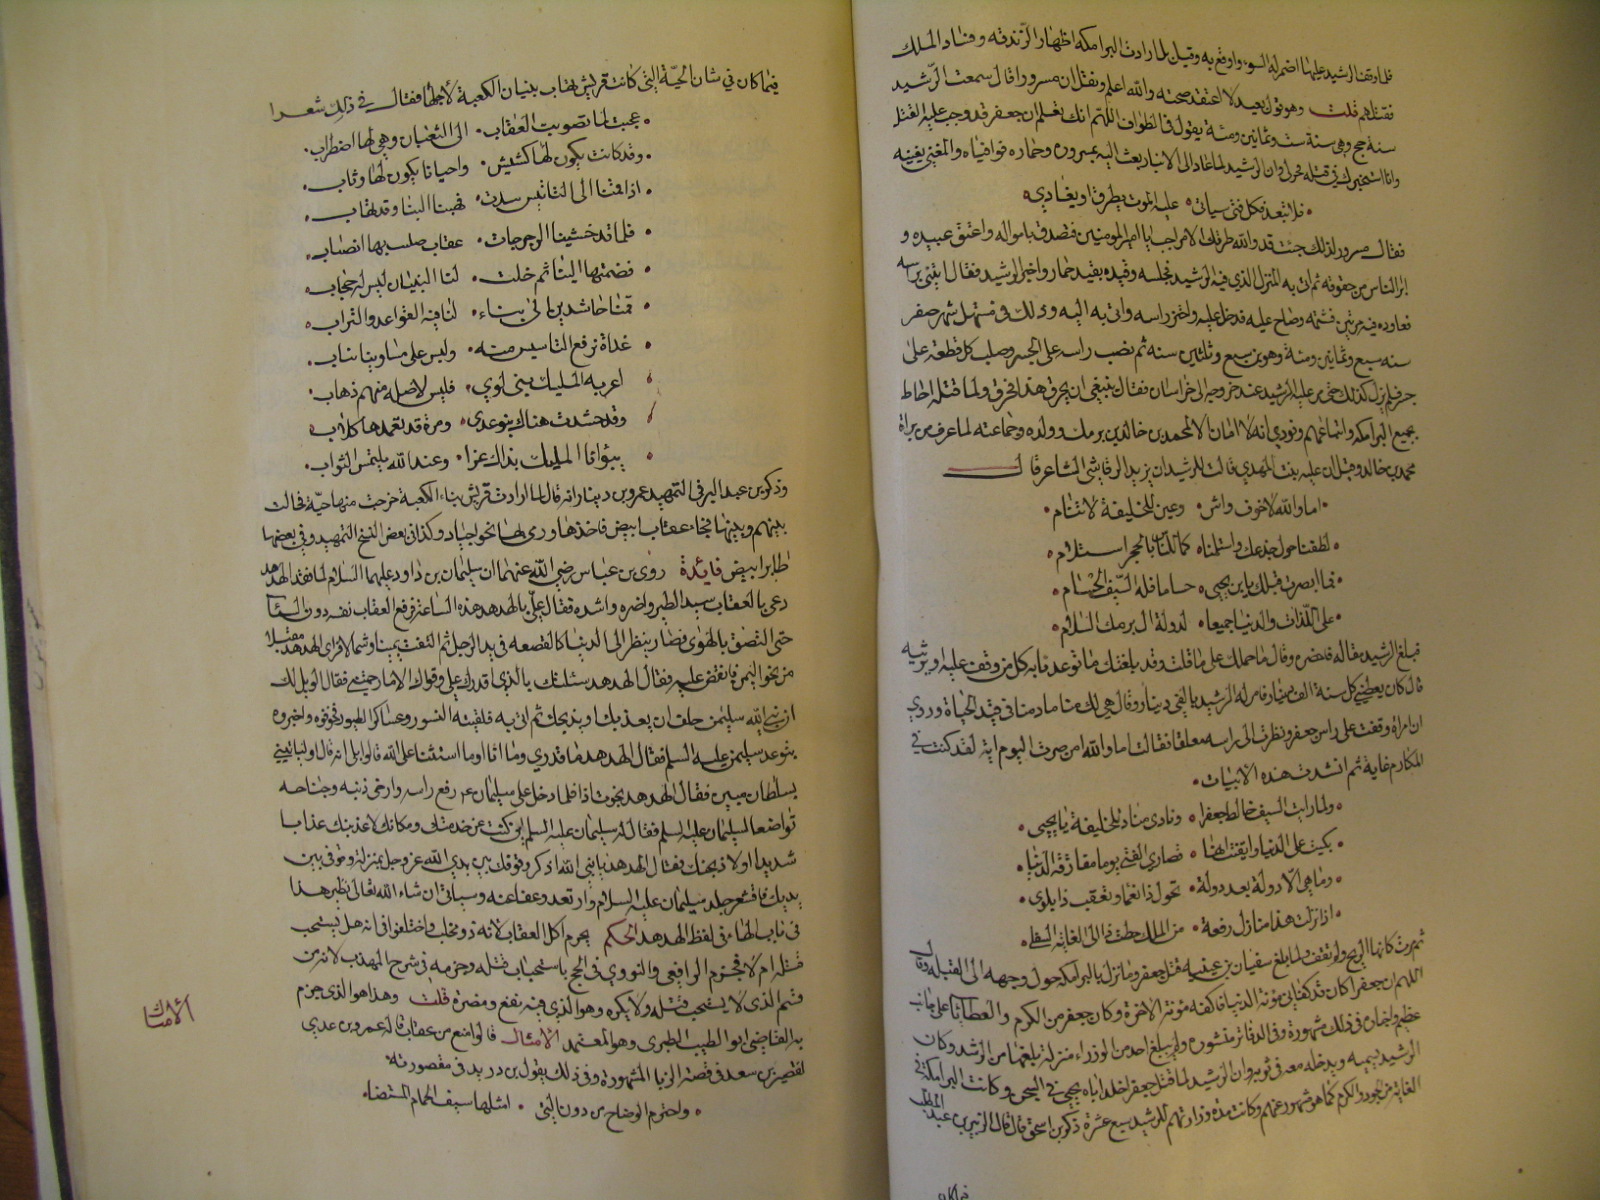 فلما وقف الرشيد عليها اضمر له السوء واوقع به وقيل لما ارادت البرامكه اظهار الزندقه وفساد الملك
فقتلهم قلت وهو قول بعيد لا اعتقد صحته والله اعلم ونقل ان مسرورا قال سمعت الرشيد
سنة حج وهي سنة ست وثمانين ومئة يقول في الطواف اللهم انك تعلم ان جعفر قد وجب عليه القتل
وانا استخيرك في قتله فخر لي وان الرشيد لما عاد الى الانبار بعث اليه بمسرور وحماد فوافياه والمغني يغنيه
فلا تبعد فكل فتى سياتي عليه الموت يطرق او يغادي
فقال مسرور لذلك جئت قد والله طرقك الامر اجب يا امير المومنين فتصدق باموالـه واعتق عبيده و
ابرا الناس من حقوقه ثم اتى به المنزل الذي فيه الرشيد فحبسه وقيده بقيد حمار واخبر الرشيد فقال ائتني براسه
فعاوده فيه مرتين فشتمه وصاح عليه فدخل عليه واخذ راسه واتى به اليه وذلك في مستهل شهر صفر
سنه سبع وثمانين ومئة وهو بن سبع وثلثين سنه ثم نصب راسه على الجسر وصلب كل قطعة على
جسر فلم يزل كذلك حتى مر عليه الرشيد عند خروجه الى خراسان فقال ينبغي ان يحرق هذا فحرق ولما قتله احاط
بجميع البرامكه واتباعهم ونودي انه لا امان الا لمحمد بن خالد بن برمك وولده وجماعته لما عرف من براة
محمد بن خالد وقيل ان عليه بنت المهدي قالت للرشيد ان يزيد الرقاشي الشاعر قال
اما والله لا خوف واش وعين للخليفة لا تنام
لطفنا حول جذعك واستلمنا كما للناس بالحجر استلام
فما ابصرت قبلك يا بن يحيى حساما فله السيف الحسام
على اللذات والدنيا جميعا لدولة ال برمك السلام
فبلغ الرشيد مقاله فاحضره وقال ما حملك على ما قلت وقد بلغتك ما توعدنا به كل من وقف عليه او يرثيه
قال كان يعطيني كل سنة الف دينار فامر له الرشيد بالفي دينار وقال هي لك منا ما دمنا في قيد الحياة وروي
ان امراة وقفت على راس جعفر ونظرت الى راسه معلقا فقالت اما والله ان صرت اليوم اية لقد كنت في
المكارم غاية ثم انشدت هذه الابيات
ولما رايت السيف خالط جعفرا ونادى مناد للخليفة يا يحيى
بكيت على الدنيا وايقنت انما قصارى الفتى يوما مفارقة الدنيا
وما هي الا دولة بعد دولة تحول ذا نعما وتعقب ذا بلوى
اذا نزلت هذا منازل رفعة من الملك حطت ذا الى الغاية السفلى
ثم مرت كانها الريح ولم تقف ولما بلغ سفيان بن عيينه قتل جعفر وما نزل بالبرامكه حول وجهه الى القبله وقال
اللهم ان جعفرا كان قد كفاني مؤنة الدنيا فاكفه مؤنة الاخرة وكان جعفر من الكرم والعطايا على جانب
عظيم واخباره في ذلك مشهورة وفي الدفاتر منشوره ولم يبلغ احد من الوزراء منزلة بلغها من الرشيد وكان
الرشيد يسميه ويدخله معه في ثوبه وان الرشيد لما قتل جعفر اخلد اباه يحيى في السجن وكانت البرامكة في
الغاية من الجود والكرم كما هو مشهور عنهم وكانت مدة وزارتهم للرشيد سبع عشرة ذكر بن اسحق قال قال الزبير بن عبد المطلب
فيما كان
فيما كان في شان الحية التي كانت قريش تهاب بنيان الكعبة لاجلها فقال في ذلك شعرا
عجبت لما تصويت العقاب الى الثعبان وهي لها اضطراب
وقد كانت يكون لها كشيش واحيانا يكون لها وثاب
اذا قمنا الى التاسيس شدت فهبنا البنا وقد تهاب
فلما قد خشينا الرجز جات عقاب صلب بها انصباب
فضمتها اليها ثم خلت لنا البنيان ليس له حجاب
فقمنا حاشدين الى بناء لنا فيه القواعد والتراب
غداة نرفع التاسيس منه وليس على مساوينا ثياب
اعز به المليك بني لوي فليس لاصله منهم ذهاب
وقد حشدت هناك بنو عدي ومرة قد تعمدها كلاب
يبوانا المليك بذاك عزا وعند الله يلتمس الثواب
وذكر بن عبد البر في التمهيد عمرو بن دينار انه قال لما ارادت قريش بناء الكعبة خرجت منها حيّة فحالت
بينهم وبينها فجاء عقاب ابيض فاخذها ورمى بها نحو اجياد وكذا في بعض النسخ التمهيد وفي بعضها
طائر ابيض فائدة روى بن عباس رضي الله عنهما ان سليمان بن داود عليهما السلام لما فقد الهدهد
دعى بالعقاب سيد الطير واضره واشده فقال علي بالهدهد هذه الساعة فرفع العقاب نفسه دون السما
حتى التصق بالهوى فصار ينظر الى الدنيا كالقصعه في يد الرجل ثم التفت يمينا وشمالا فراى الهدهد مقبلا
من نحو اليمن فانقض عليه فقال الهدهد سئلتك بالذي اقدرك علي وقواك الا ما رحمتني فقال الويل لك
ان نبي الله سليمن حلف ان يعذبك او يذبحك ثم اتى به فلقيته النسور وعساكر الطيور فخوفوه واخبروه
بتوعد سليمن عليه السلم فقال الهدهد ما قدري وما انا اوما استثنا نبي الله قالوا بلى انه قال او لياتيني
بسلطان مبين فقال الهدهد نجوت اذا فلما دخل على سليمان عم رفع راسه وارخى ذنبه وجناحه
تواضعا لسليمان عليه السلم فقال له سليمان عليه السلم اين كنت عن خدمتك ومكانك لاعذبنك عذابا
شديدا او لاذبحنك فقال الهدهد يا نبي الله اذكر وقوفك بين يدي الله عز وجل بمنزلة وقوفي بين
يديك فاقشعر جلد سليمان عليه السلام وارتعد وعفا عنه وسياتي ان شاء الله تعالى نظير هذا
في باب الهاء في لفظ الهدهد الحكم يحرم اكل العقاب لانه ذو مخلب واختلفوا في انه هل يستحب
قتله ام لا فجزم الرافعي والنووي في الحج باستحباب قتله وجزم به في شرح المهذب لانه من
قسم الذي لا يستحب قتله ولا يكره وهو الذي فيه نفع ومضرة قلت وهذا هو الذي جزم
به القاضي ابو الطيب الطبري وهو المعتمد الامثال قالوا امنع من عقاب قاله عمرو بن عدي
لقصير بن سعد في قصة الزبا المشهورة وفي ذلك يقول بن دريد في مقصورته
واخترم الوضاح من دون التي املها سيف الحمام المنتضا
الامثال